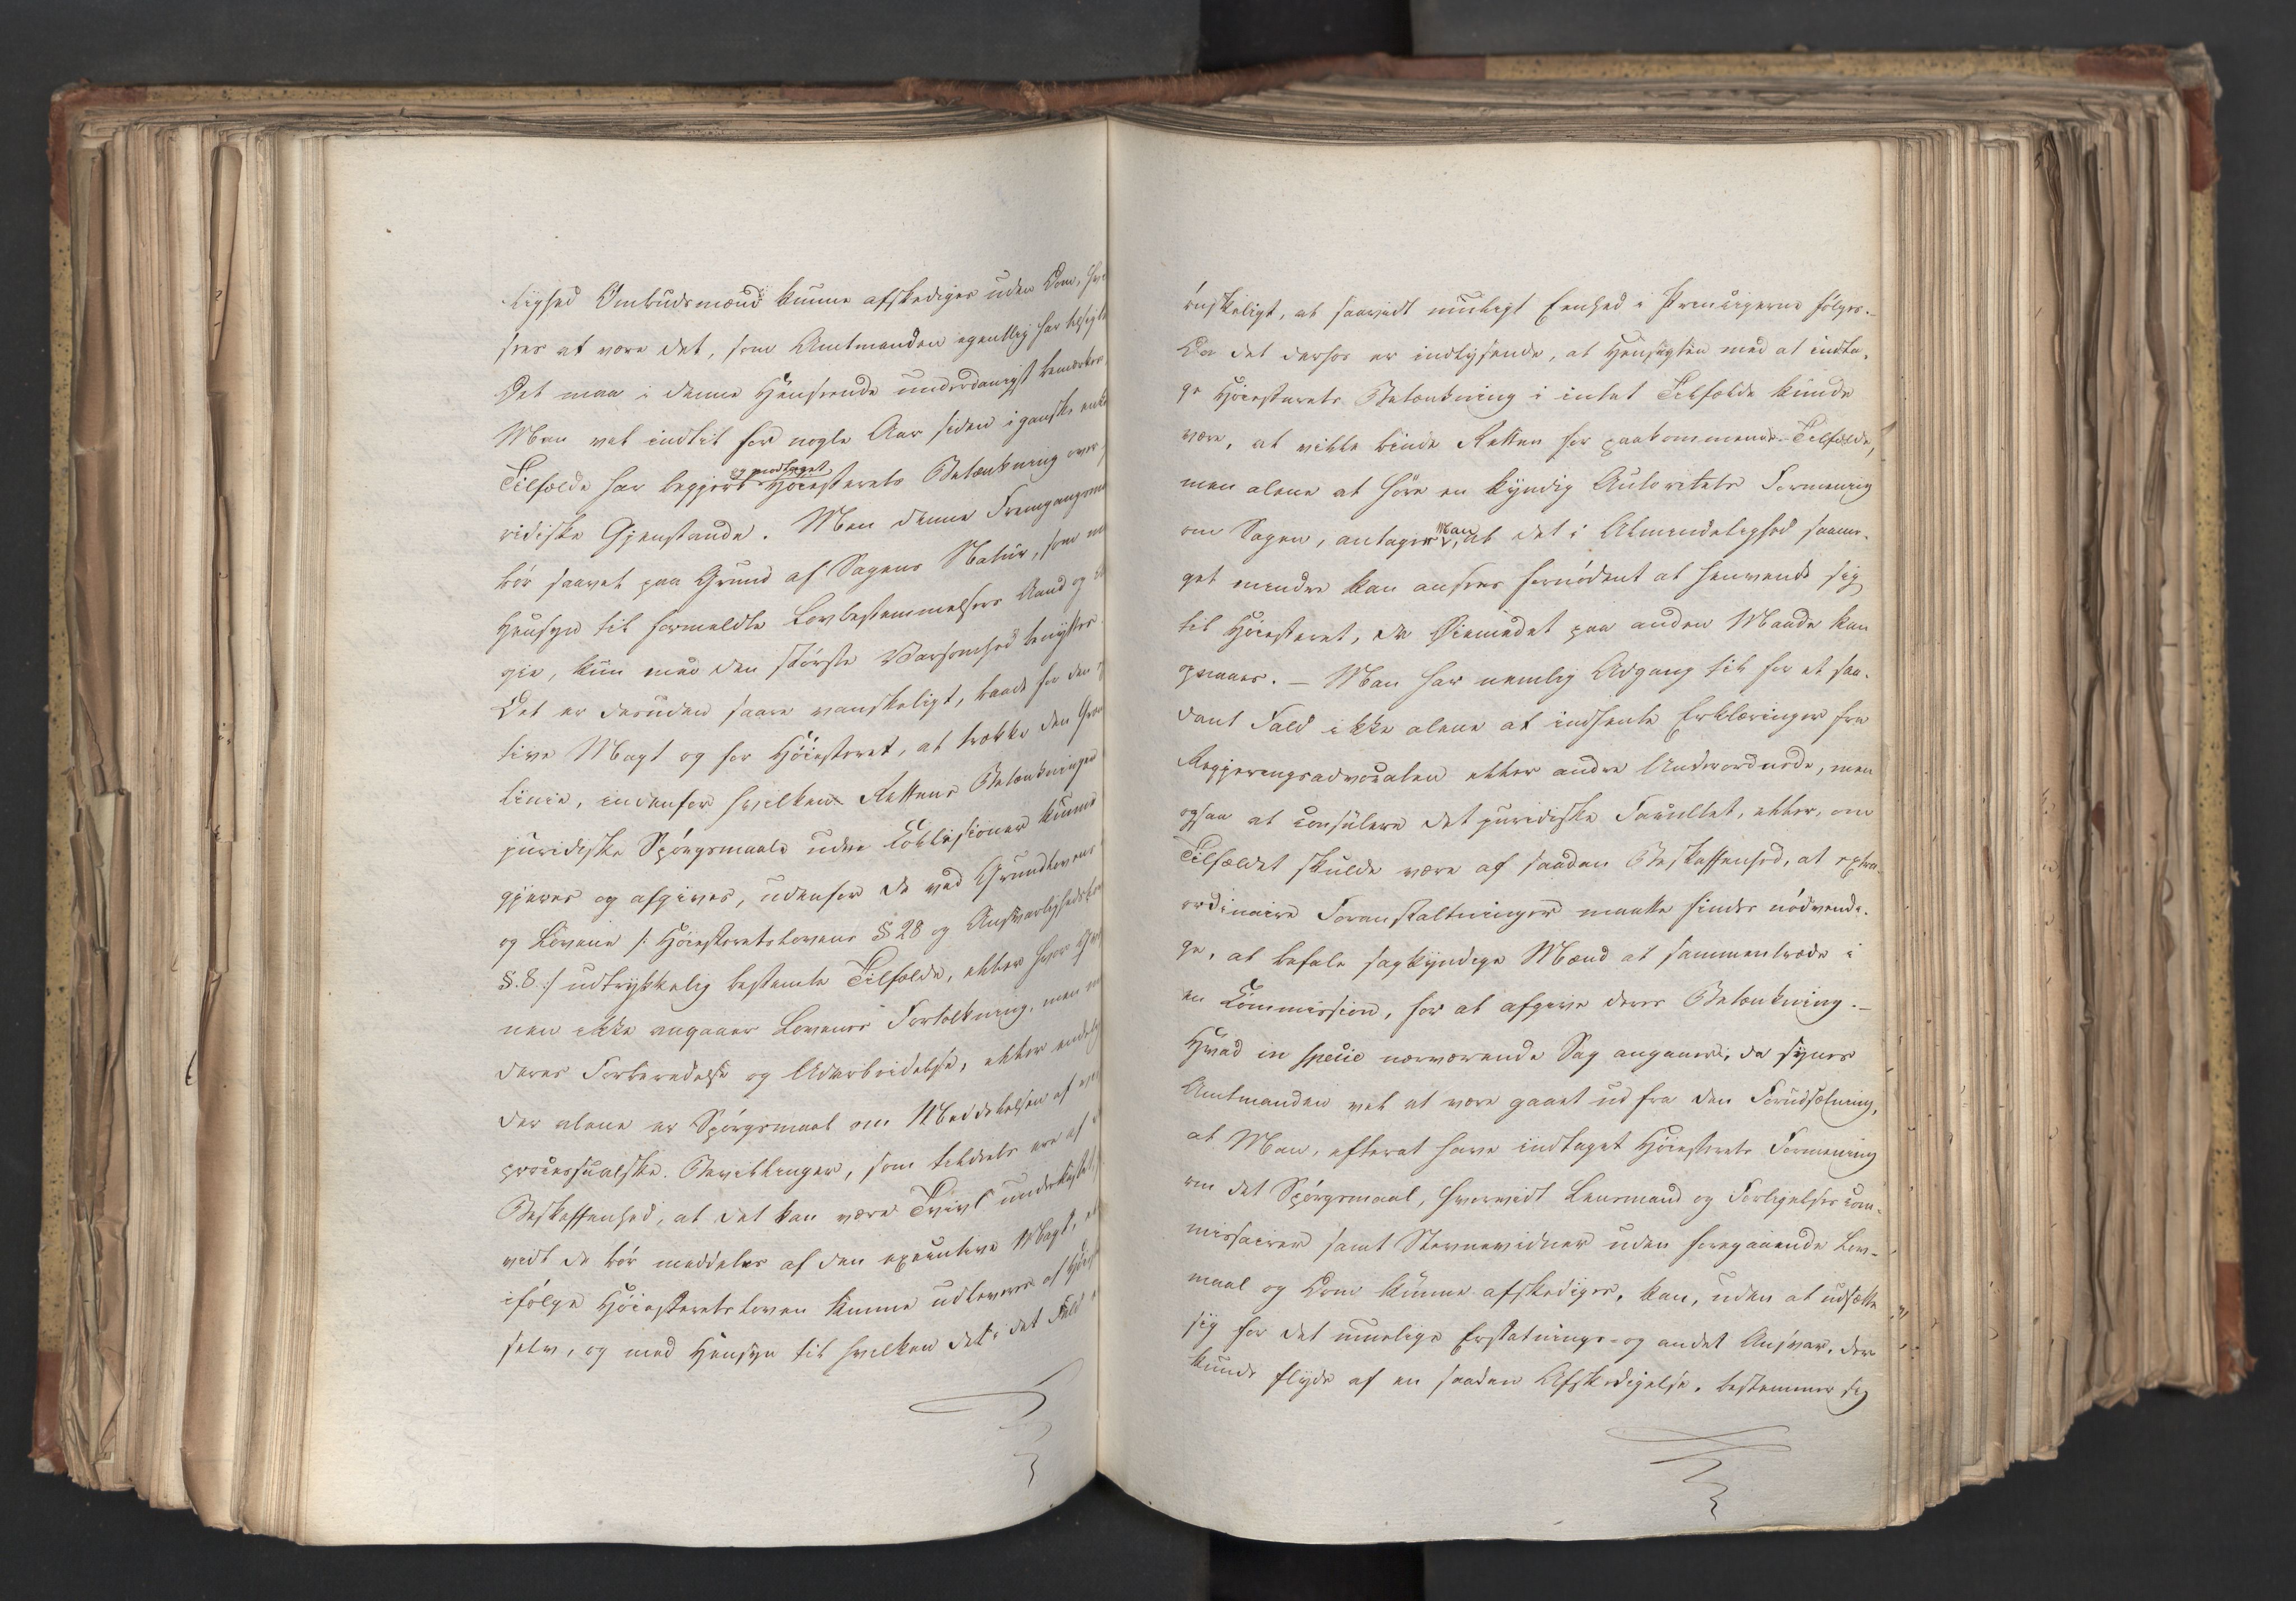 lighed Ombudsmænd kunne afskediges uden Dom, hvil
sees at være det, som Amtmanden egentlig har tilsigte
Det maa i denne Henseende underdanigst bemærkes
Man vel indtil for nogle Aar siden i ganske enke
og modtaget
Tilfælde har begjert Høiesterets Betænkning over
ridiske Gjenstande. Men denne Fremgangsmaa
bør saavel paa Grund af Sagens Natur, som me
Hensyn til formeldte Lovbestemmelsers Aand og
gie, kun med den største Varsomhed benyttes.
Det er desuden saare vanskeligt, baade for den
tive Magt og for Høiesteret, at trække den Græn
linie, indenfor hvilken Rettens Betænkninger
juridiske Spørgsmaale uden Collisioner kunne
gjeres og afgives, udenfor de ved Grundlovens
og Lovene /: Høiesteretslovens § 28 og Ansvarlighedslov
§. 8 :/ udtrykkelig bestemte Tilfælde, eller hvor
nen ikke angaaer Lovenes Fortolkning, men
deres Forberedelse og Udarbeidelse, eller endelig
der alene er Spørgsmaal om Meddelelsen af
processualske Bevillinger, som tildeels ere af
Beskaffenhed, at det kan være Tvivl underkastet,
vidt de bør meddeles af den executive Magt,
ifølge Høiesteretsloven kunne udleveres af Høieste
selv, og med Hensyn til hvilken det i det Fald
ønskeligt, at saavidt muligt Eenhed i Principerne følges.
Da det derhos er indlysende, at Hensigten med at indta-
ge Høiesterets Betænkning i intet Tilfælde kunde
være, at ville binde Retten for paakommende Tilfælde,
men alene at høre en kyndig Autoritets Formening
om Sagen, antager Man, at det i Almindelighed saame-
get mindre kan ansees fornødent at henvende sig
til Høiesteret, da Øiemedet paa anden Maade kan
opnaaes. – Man har nemlig Adgang til for et saa-
dant Fald ikke alene at indhente Erklæringer fra
Regjeringsadvocaten eller andre Underordnede, men
ogsaa at consulere det juridiske Facultet, eller, om
Tilfældet skulde være af saadan Beskaffenhed, at extra-
ordinaire Foranstaltninger maatte findes nødvendi-
ge, at befale sagkyndige Mænd at sammentræde i
en Commission, for at afgive deres Betænkning. –
Hvad in specie nærværende Sag angaaer, da synes
Amtmanden vel at være gaaet ud fra den Forudsætning,
at Man, efterat have indtaget Høiesterets Formening
om det Spørgsmaal, hvorvidt Lensmænd og Forligelsescom-
missairer samt Stevnevidner uden foregaaende Lov-
maal og Dom kunne afskediges, kan, uden at udsætte
sig for det muelige Erstatnings- og andet Ansvar, der
kunde flyde af en saadan Afskedigelse, bestemme sig